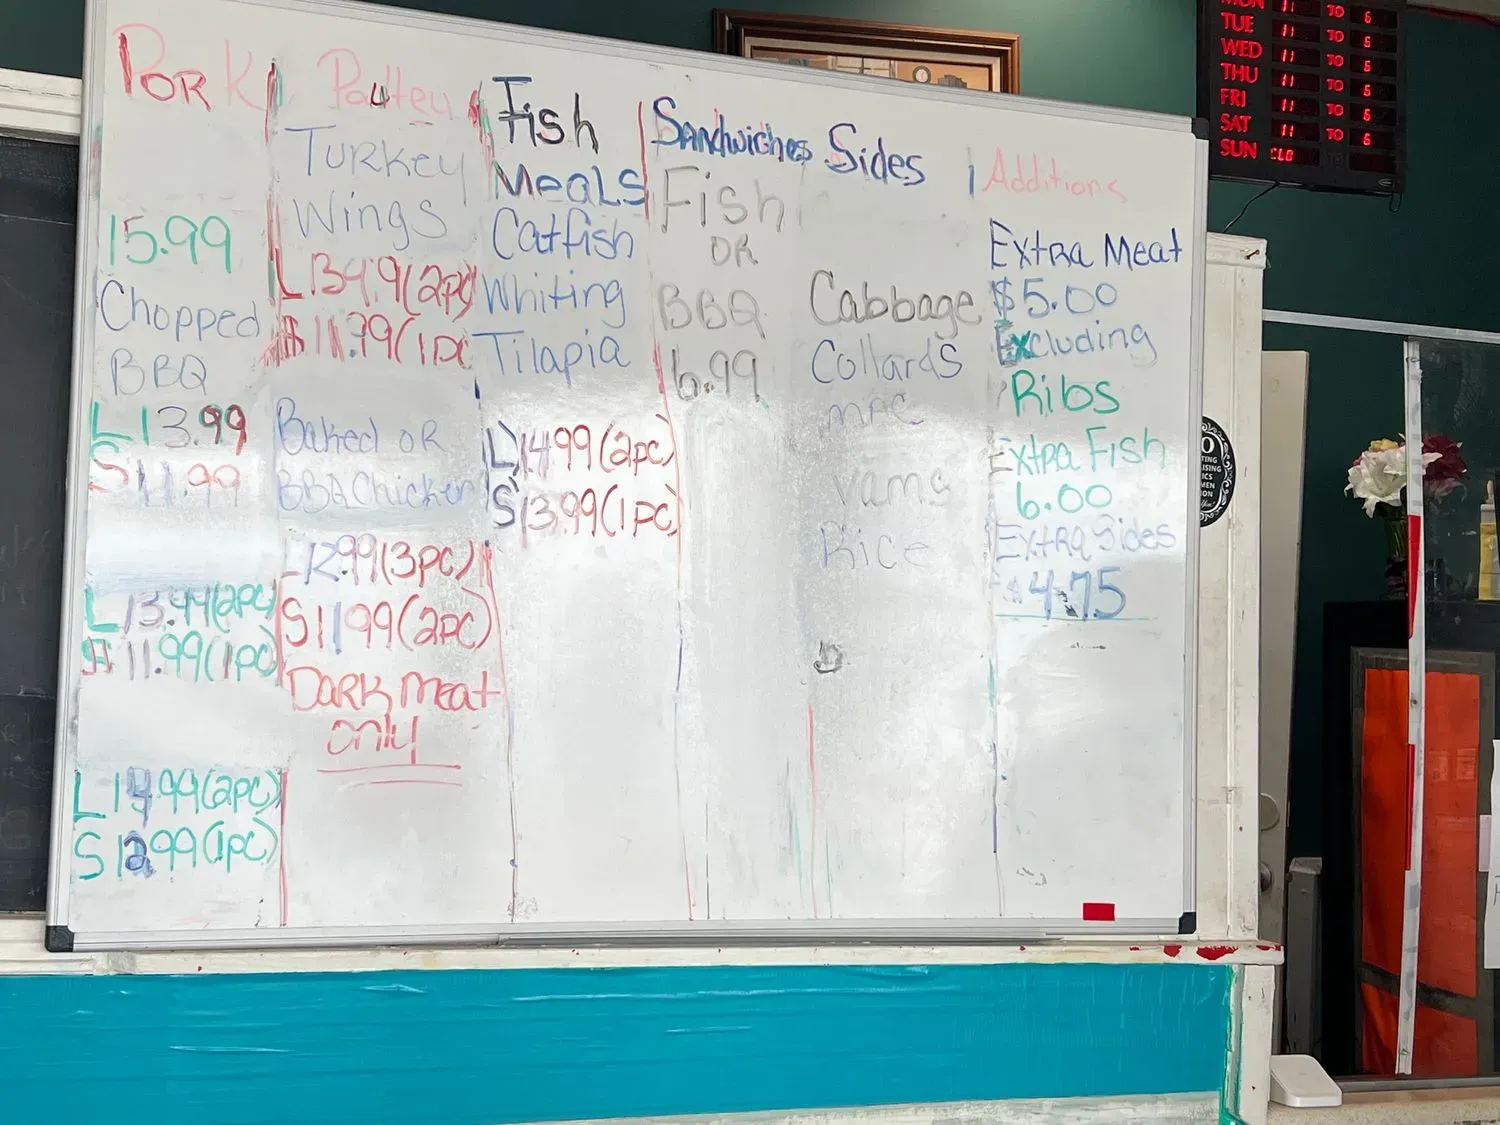 PORK
15.99
Chopped
BBQ
L 13.99
S 11.99
L 13.99 (2pc)
11.99 (1pc)
L 14.99 (2pc)
S 12.99 (1pc)
Poultey
Turkey
Wings
L 134.9 (2pc)
11.99 (1pc
Baked or
BBQ Chicken
L 12.99 (3pc)
S 11.99 (2pc)
Dark meat
only
Fish
Meals
Catfish
Whiting
Tilapia
L) 14.99 (2pc)
S 13.99 (1pc)
Sandwiches
Fish
OR
BBQ
6.99
Sides
Cabbage
Collards
mac
yams
Rice
Additions
Extra Meat
$5.00
Excluding
Ribs
Extra Fish
6.00
Extra Sides
$4.75
MON 11 TO 6
TUE 11 TO 6
WED 11 TO 6
THU 11 TO 6
FRI 11 TO 6
SAT 11 TO 6
SUN CLO